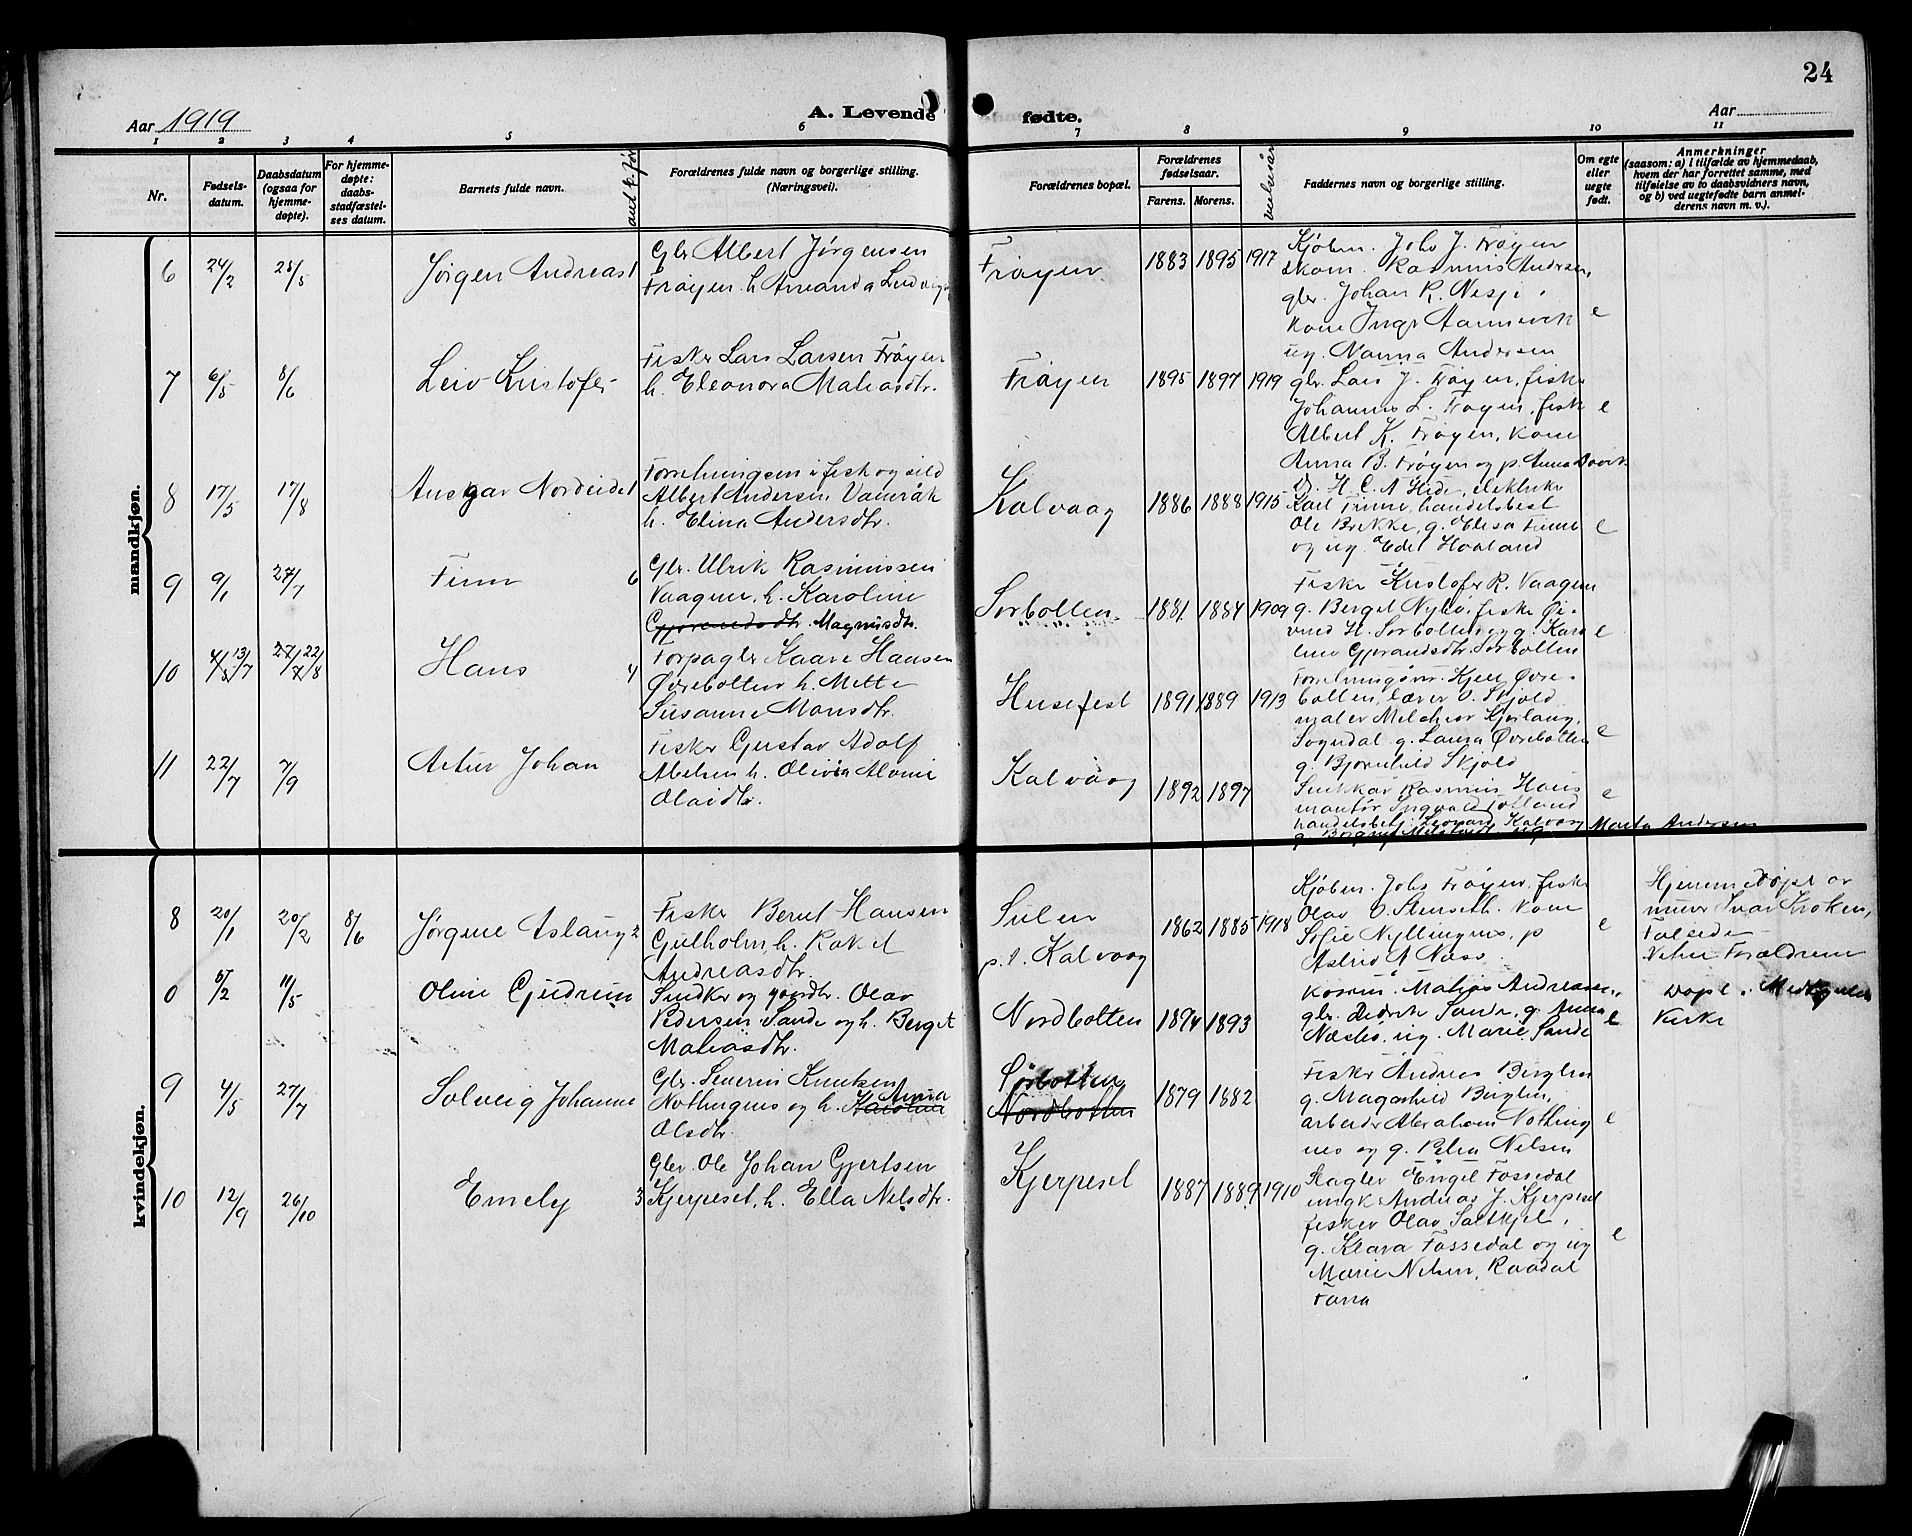 24
Aar 1919
A. Levende fødte.
Aar
1 2 3 4 5 6 7 8 9 10 11
Nr.
Fødsels-
datum.
Daabsdatum
(ogsaa for
hjemme-
døpte).
For hjemme-
døpte:
daabs-
stadfæstel-
ses datum.
Barnets fulde navn.
Forældrenes fulde navn og borgerlige stilling.
(Næringsvei).
Forældrenes bopæl.
Forældrenes
fødselsaar.
Farens. Morens.
Faddernes navn og borgerlige stilling.
Om egte
eller
uegte
født.
Anmerkninger
(saasom: a) i tilfælde av hjemmedaab,
hvem der har forrettet samme, med
tilføielse av to daabsvidners navn,
og b) ved uegtefødte barn anmel-
derens navn m. v.).
mandkjøn.
6 24/2 25/5 Jørgen Andreas 1
Gbr. Albert Jørgensen
Frøyen h. Amanda
Frøyen 1883 1895 1917
Kjøbm. Johs J. Frøyen
skom. Rasmus Andersen,
gbr. Johan R. Nesje,
kone Inga
ug. Nanna Andersen
e
7 6/5 8/6 Leiv Kristofer
Fisker Lars Larsen Frøyen
h. Eleonora Matiasdtr.
Frøyen 1895 1897 1919
gbr. Lars J. Frøyen, fisker
Johannes L. Frøyen, fisk
Albert K. Frøyen, kone
Anna B. Frøyen og p. Anna
e
8 17/5 17/8 Ansgar Nordeide 1
Forretningsm i fisk og sild
Albert Andersen
h. Elina Andersdtr.
Kalvaag 1886 1888 1915
Karl handelsbest
Ole Brekke, g. Elisa
og ug. Edel Hovland
e
9 9/1 27/7 Finn 6
Gbr. Ulrik Rasmussen
Vaagene, h. Karoline
Magnusdtr.
Sørbotten 1881 1884 1909
Fisker Kristofer R. Vaagene
g. Berget Nybø, fisker Øi-
vind H. Sørbotten og g. Karo
line Gjerandsdtr. Sørbotten
e
10 13/7 27/7 22/8 Hans 4
Forpagter Kaare Hansen
Øvrebotten h. Mette
Susanne Monsdtr.
Husefest 1891 1889 1913
Forretningsm. Kjell Øvre-
botten, lærer O. Skjold
maler Melchior
Sogndal g. Laura Øvrebotten
g. Bjørnhild Skjold
e
11 22/7 7/9 Artur Johan
Fisker Gustav Adolf
Abelsen h. Olivia
Olaidtr.
Kalvaag 1892 1897
Rasmus Hans
montør Ingvald
handelsbetj. Leonard Kalvaag
Marta Andersen
e
kvindekjøn.
8 20/1 20/2 8/6 Jørgine Aslaug 2
Fisker Bernt Hansen
Gulholm, h. Rakel
Andreasdtr.
Sulen
p.t. Kalvaag
1862 1885 1918
Kjøbm. Johs Frøyen, fisker
Olav O. Stenseth, kone
Sofie Nyllingnes, p
Astrid A Næss.
e
Hjemmedøpt av
murer Ivar Kroken,
Vitner Forældrene
0 5/2 11/5 Oline Gjudrun
Smed og gaardbr. Olav
Pedersen Sande og h. Berget
Matiasdtr.
Nordbotten 1894 1893
Matias Andreasen,
gbr. Didrik Sande, g. Anna
Næsbø, ug. Marie Sande
e
Døpt i
Kirke
9 4/5 27/7 Solveig Johanne
Gbr. Severin Knutsen
Nothingnes og h. Karoline Anna
Olsdtr.
Sørbotten
Nordbotten
1879 1882
Fisker Andreas Berglin
g. Magnhild Berglin,
arbeider Abraham Nothing
nes og g. Petra Nilsen
e
10 12/9 26/10 Emely 3
Gbr. Ole Johan Gjertsen
Kjerpeset, h. Ella Nilsdtr.
Kjerpeset
1887 1889 1910
Engel Fossedal
ungk Andreas J. Kjerpeset
fisker Olav
g. Klara Fossedal og ug
Marie Nilsen, Raadal
Fana
e